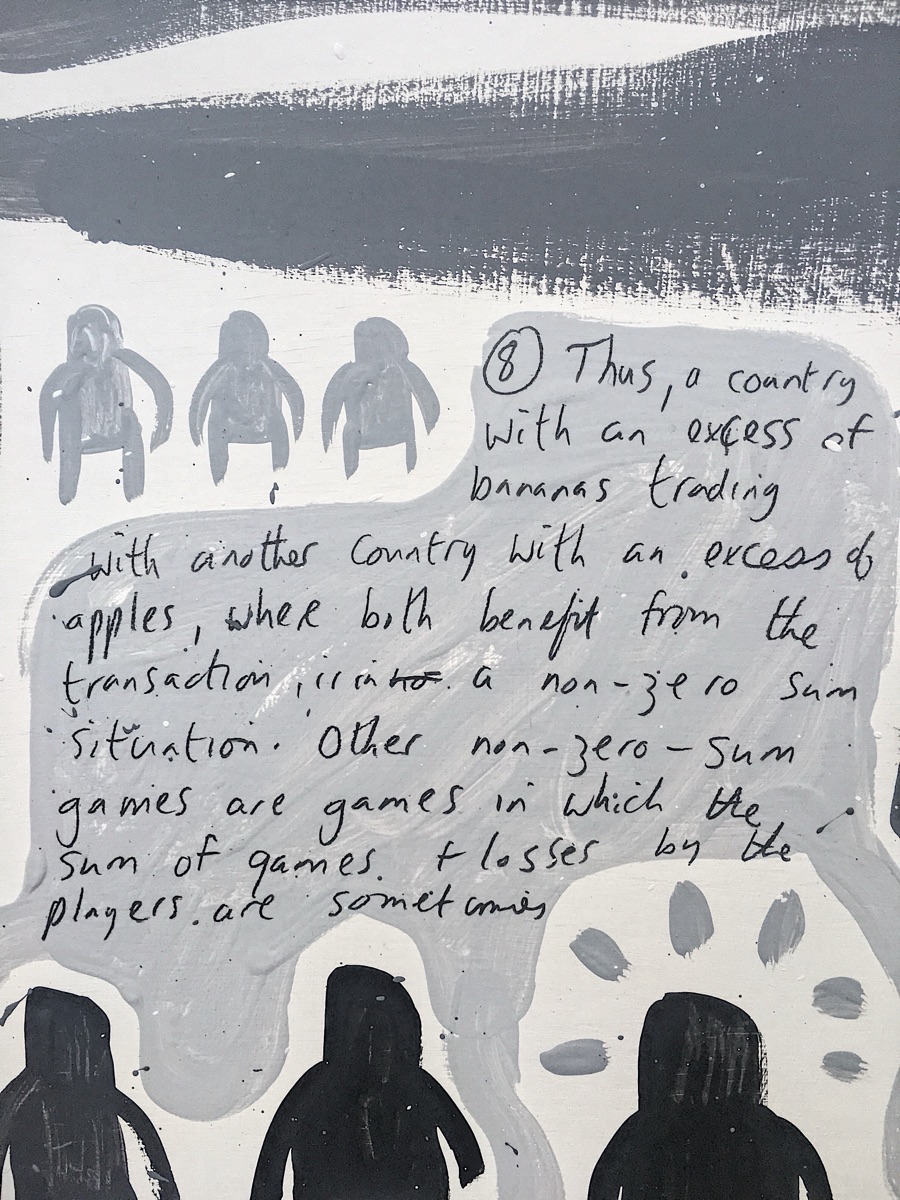 ⑧ Thus, a country
with an excess of
bananas trading
with another country with an excess of
apples, where both benefit from the
transaction, is in a non-zero sum
situation. Other non-zero-sum
games are games in which the
sum of games + losses by the
players are sometimes